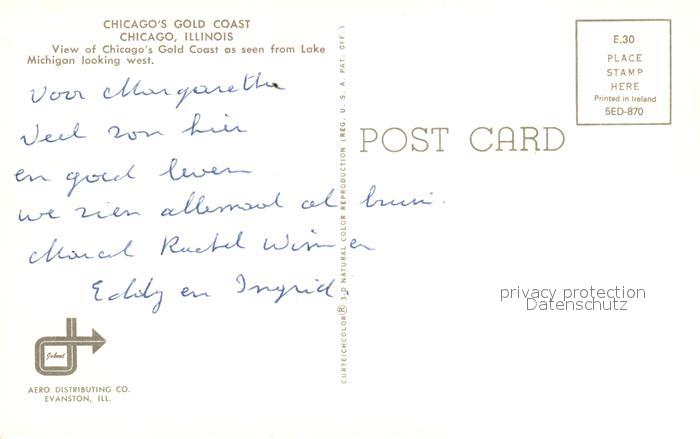 CHICAGO'S GOLD COAST
CHICAGO, ILLINOIS
View of Chicago's Gold Coast as seen from Lake
Michigan looking west.
Voor Margaretha
Veel zon hier
en goed leven
we zien allemaal al bruin.
Marcel Rachel Wim en
Eddy en Ingrid.
Jobeal
AERO DISTRIBUTING CO.
EVANSTON, ILL.
CURTEICHCOLOR® 3-D NATURAL COLOR REPRODUCTION (REG. U. S. A. PAT. OFF.)
POST CARD
E.30
PLACE
STAMP
HERE
Printed in Ireland
5ED-870
privacy protection
Datenschutz